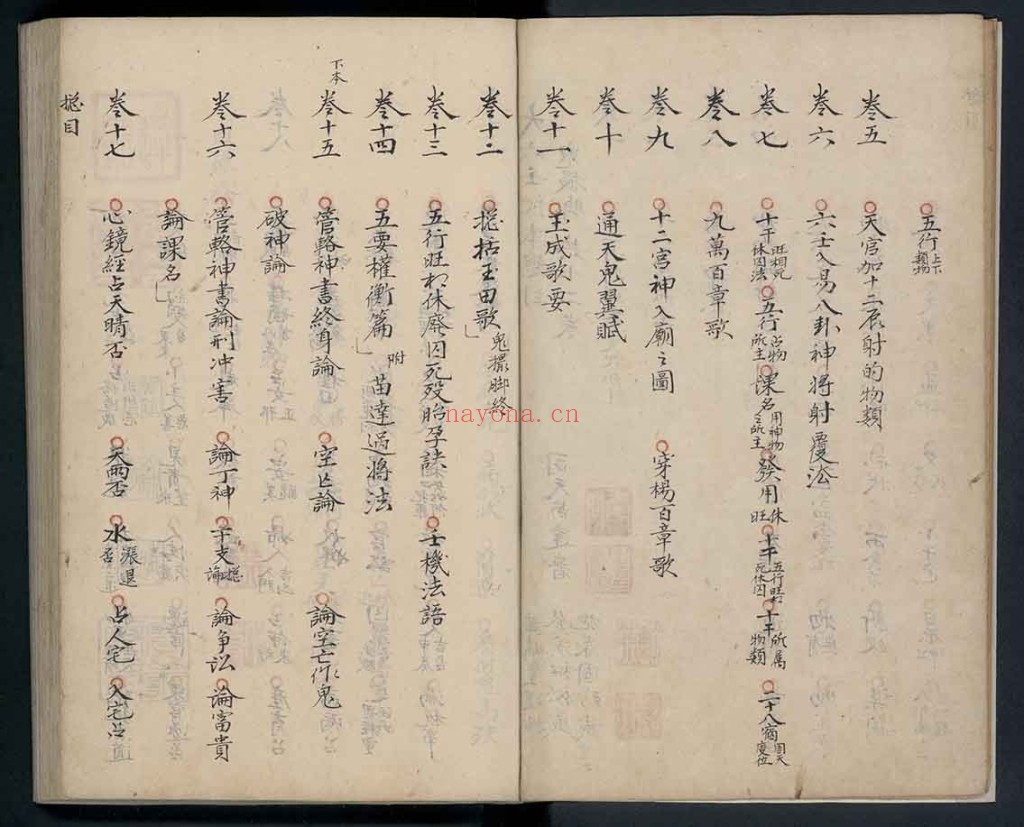 五行上下類物
卷五 天官加十二辰射的物類
卷六 六壬入易八卦神將射覆法
卷七 十干旺相死休囚法 五行占物所主 課名用神物之所主 發用休旺 十干五行旺相死休囚 十干所屬物類 二十八宿周天度位
卷八 九萬百章歌
卷九 十二宮神入廟之圖 穿楊百章歌
卷十 通天鬼翼賦
卷十一 玉成歌要
卷十二 捴括玉田歌 鬼撮脚絡
卷十三 五行旺相休廢囚死歿胎孕 壬機法語
卷十四 五要權衡篇 附苗達過將法
下本
卷十五 管輅神書終身論 空亡論 論空亡作鬼
破神論
卷十六 管輅神書論刑冲害 論丁神 干支捴論 論爭訟 論富貴
論課名
卷十七 心鏡經占天晴否 天雨否 水漲退否 占人宅 入宅占
捴目
nayona.cn